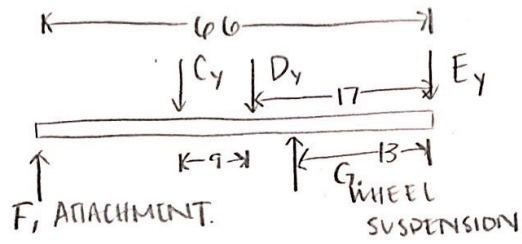 66
Cy Dy Ey
17
9 13
F, ATTACHMENT. G,
WHEEL
SUSPENSION